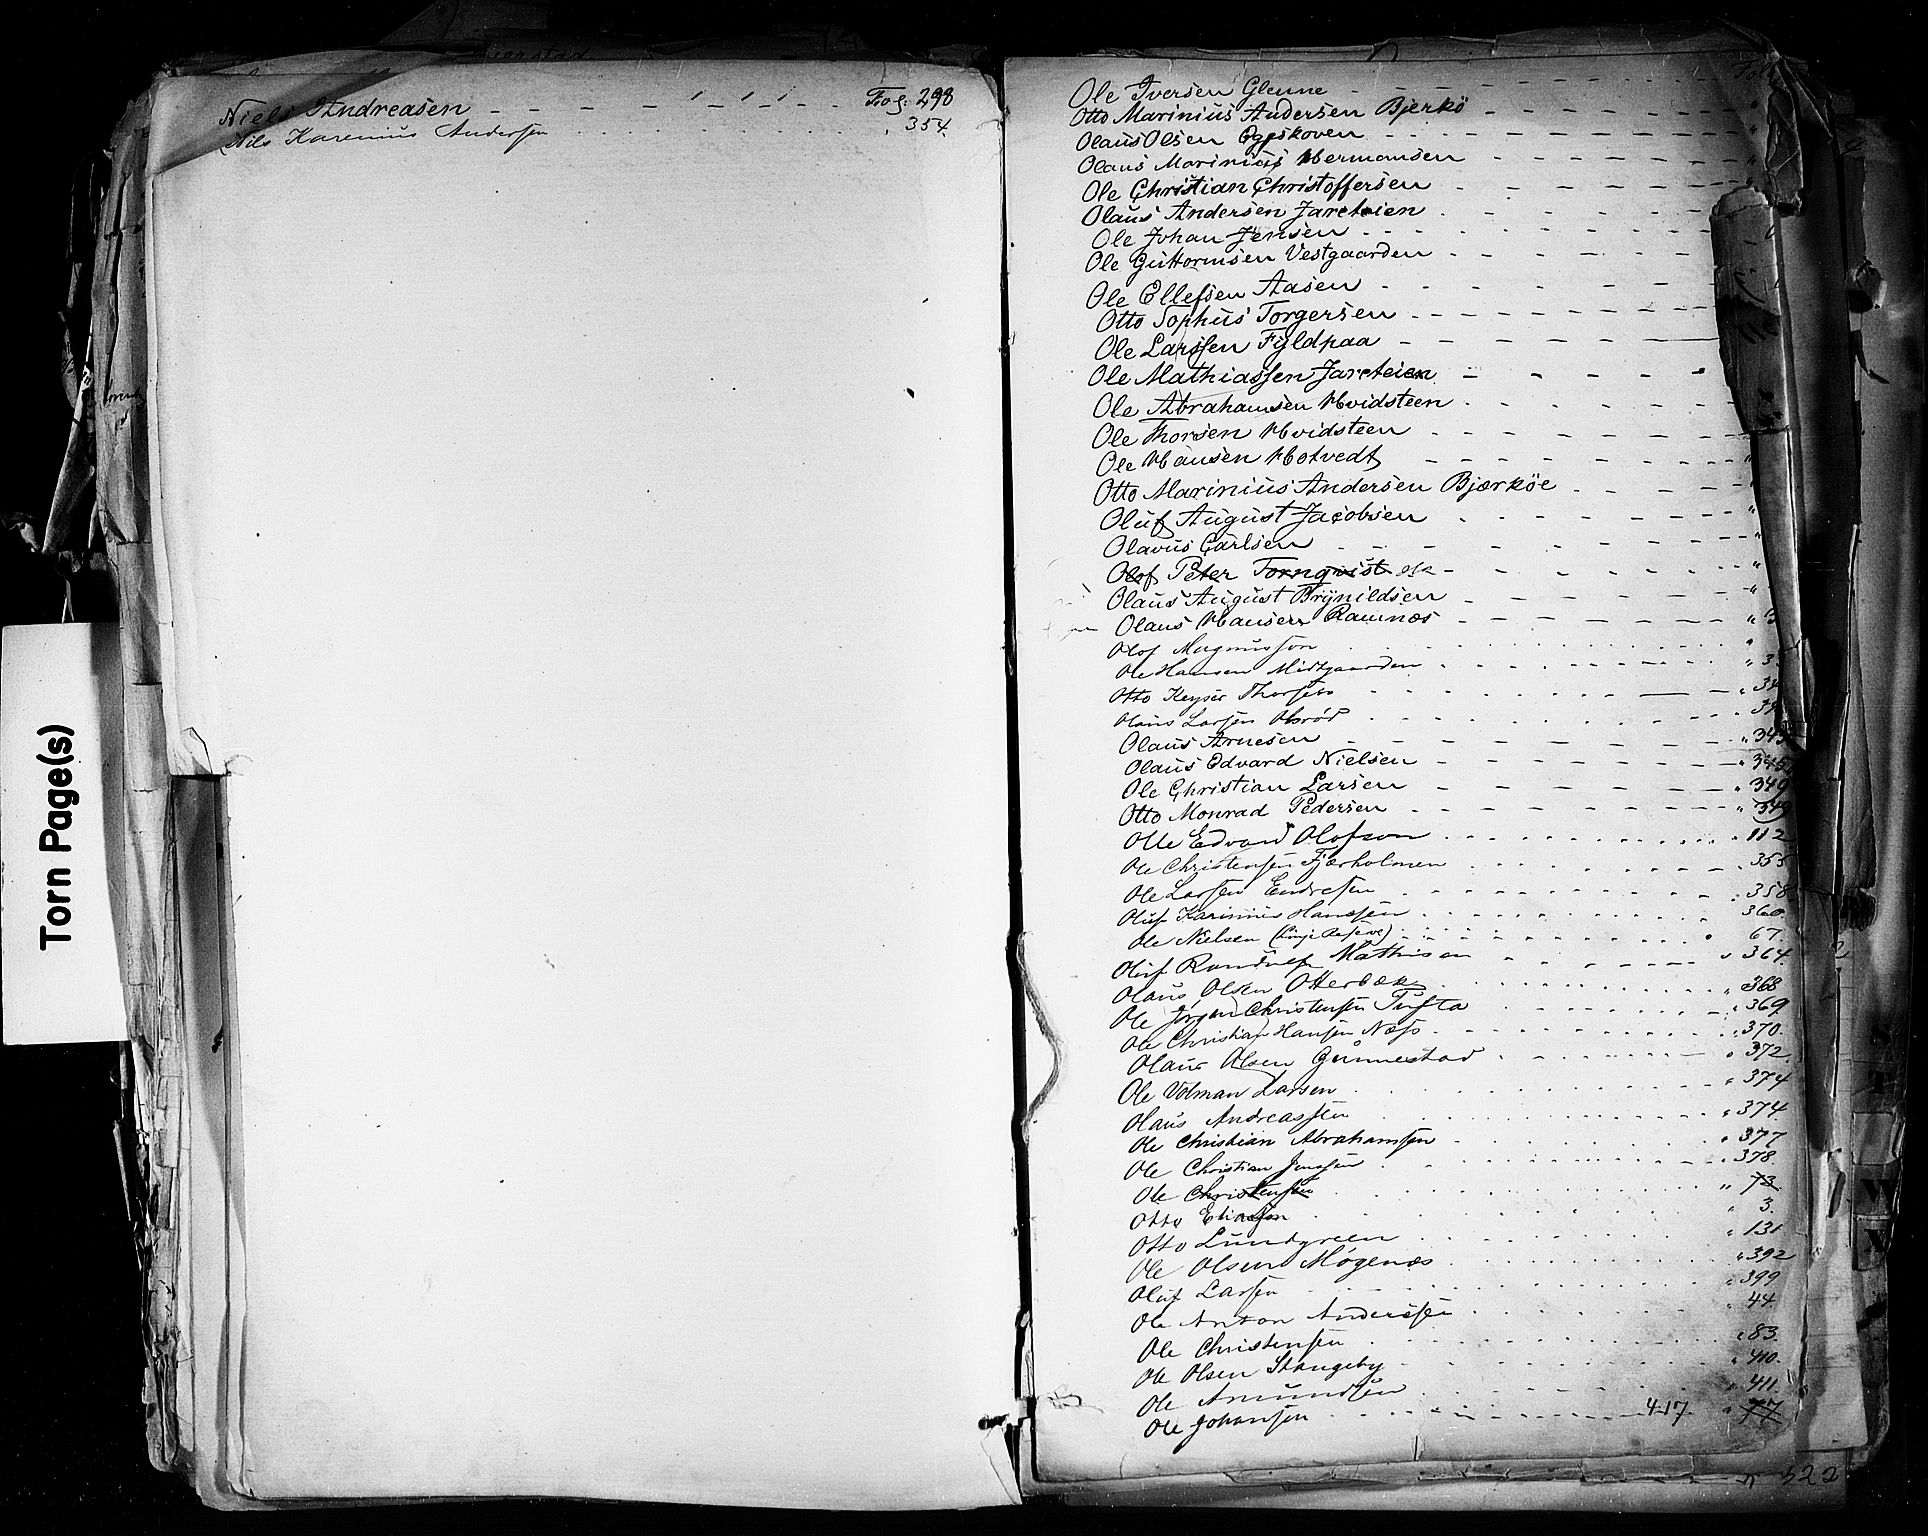 Torn Page(s)
Niels Andreasen Fog. 298
Nils Karenius Andersen 354
Ole Iversen Glenne
Otto Marinius Andersen Bjerkö
Olaus Olsen Eggskoven
Olaus Marinius Hermansen
Ole Christian Christoffersen
Olaus Andersen Jareteien
Ole Johan Jensen
Ole Guttormsen Vestgaarden
Ole Ellefsen Aasen
Otto Sophus Torgersen
Ole Larssen Fyldpaa
Ole Mathiassen Jareteien
Ole Abrahamsen Hvidsteen
Ole Thorsen Hvidsteen
Ole Hansen Hotvedt
Otto Marinius Andersen Bjærköe
Oluf August Jacobsen
Olavus Carlsen
Olof Peter Tornqvist
Olaus August Brynildsen
Olaus Hansen Ramnæs
Olof Magnusson
Ole Hansen Midtgaarden
Otto Keyser Thorsen
Olaus Larsen
Olaus Arnesen 343
Olaus Edvard Nielsen 345
Ole Christian Larsen 349
Otto Monrad Pedersen 349
Olle Edvard Olofson 112
Ole Christensen Fjærholmen 355
Ole Larsen Endresen 358
Oluf Karinius Hansen 360
Ole Nielsen (Linje Reserve) 67
Oluf Randulf Mathisen 364
Olaus Olsen Otterbæk 368
Ole Jörgen Christensen Tufta 369
Ole Christian Hansen Næss 370
Olaus Olsen Gunnestad 372
Ole Volman Larsen 374
Olaus Andreassen 374
Ole Christian Abrahamsen 377
Ole Christian Jensen 378
Ole Christensen 73
Otto Eliassen 3
Otto Lundgreen 131
Ole Olsen Mögenæs 392
Oluf Larsen 399
Ole Anton Anderssen 44
Ole Christensen 83
Ole Olsen Stangeby 410
Ole Amundsen 411
Ole Johansen 417 77
322